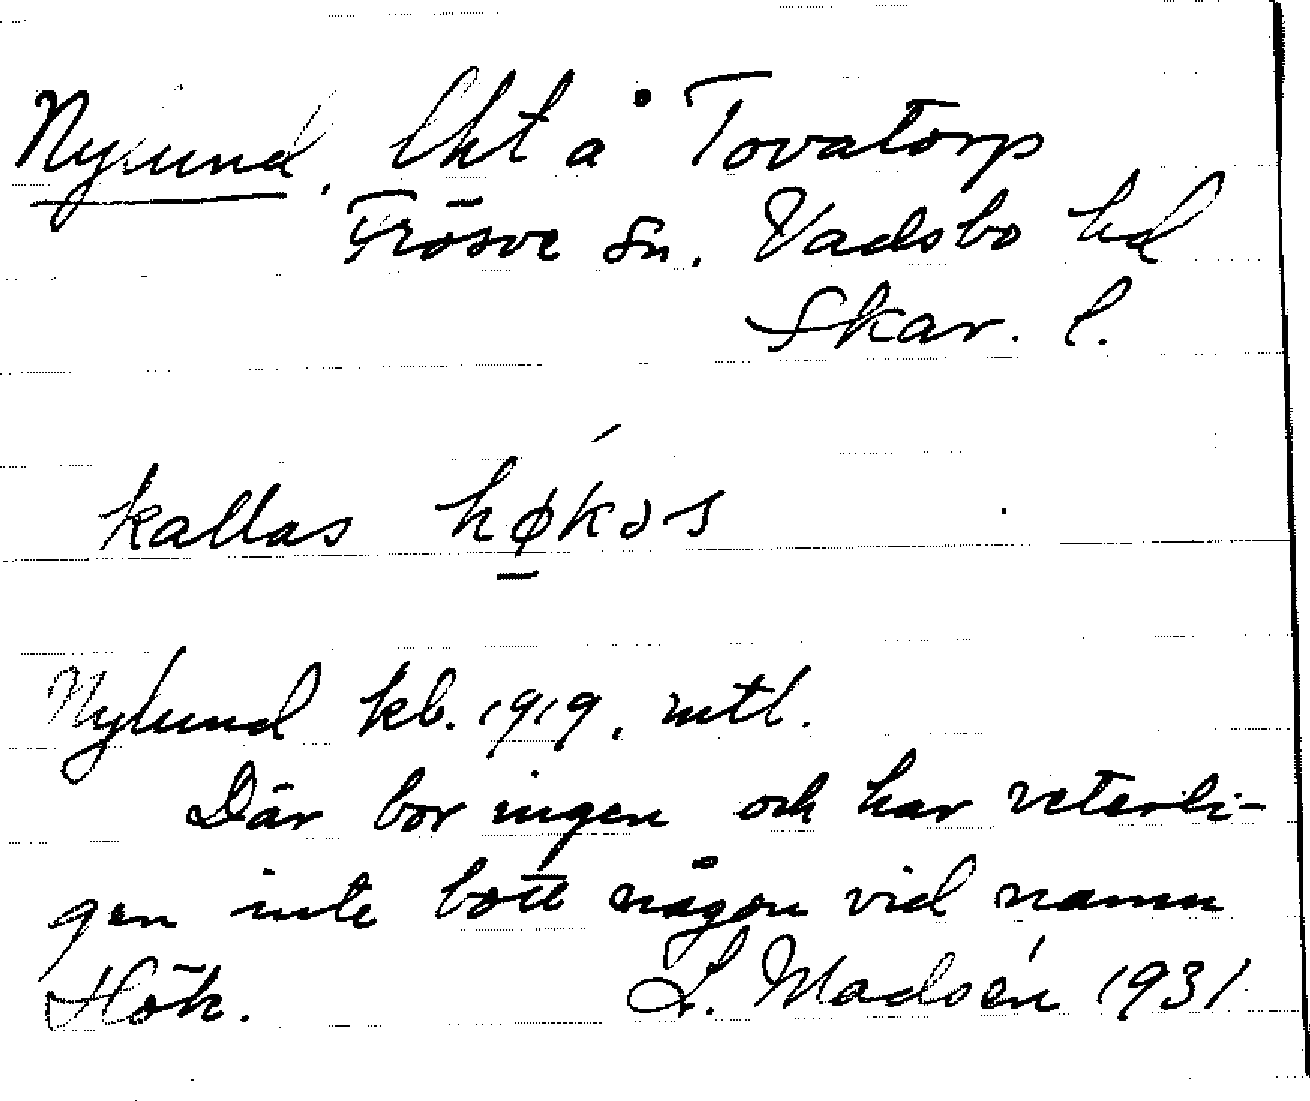 Nylund, lht å Tovatorp
Frösve sn. Vadsbo hd
Skar. l.
kallas hø̱kɔs
Nylund kb. 1919, mtl.
Där bor ingen och har veterli-
gen inte bott någon vid namn
Hök. L. Madsén 1931